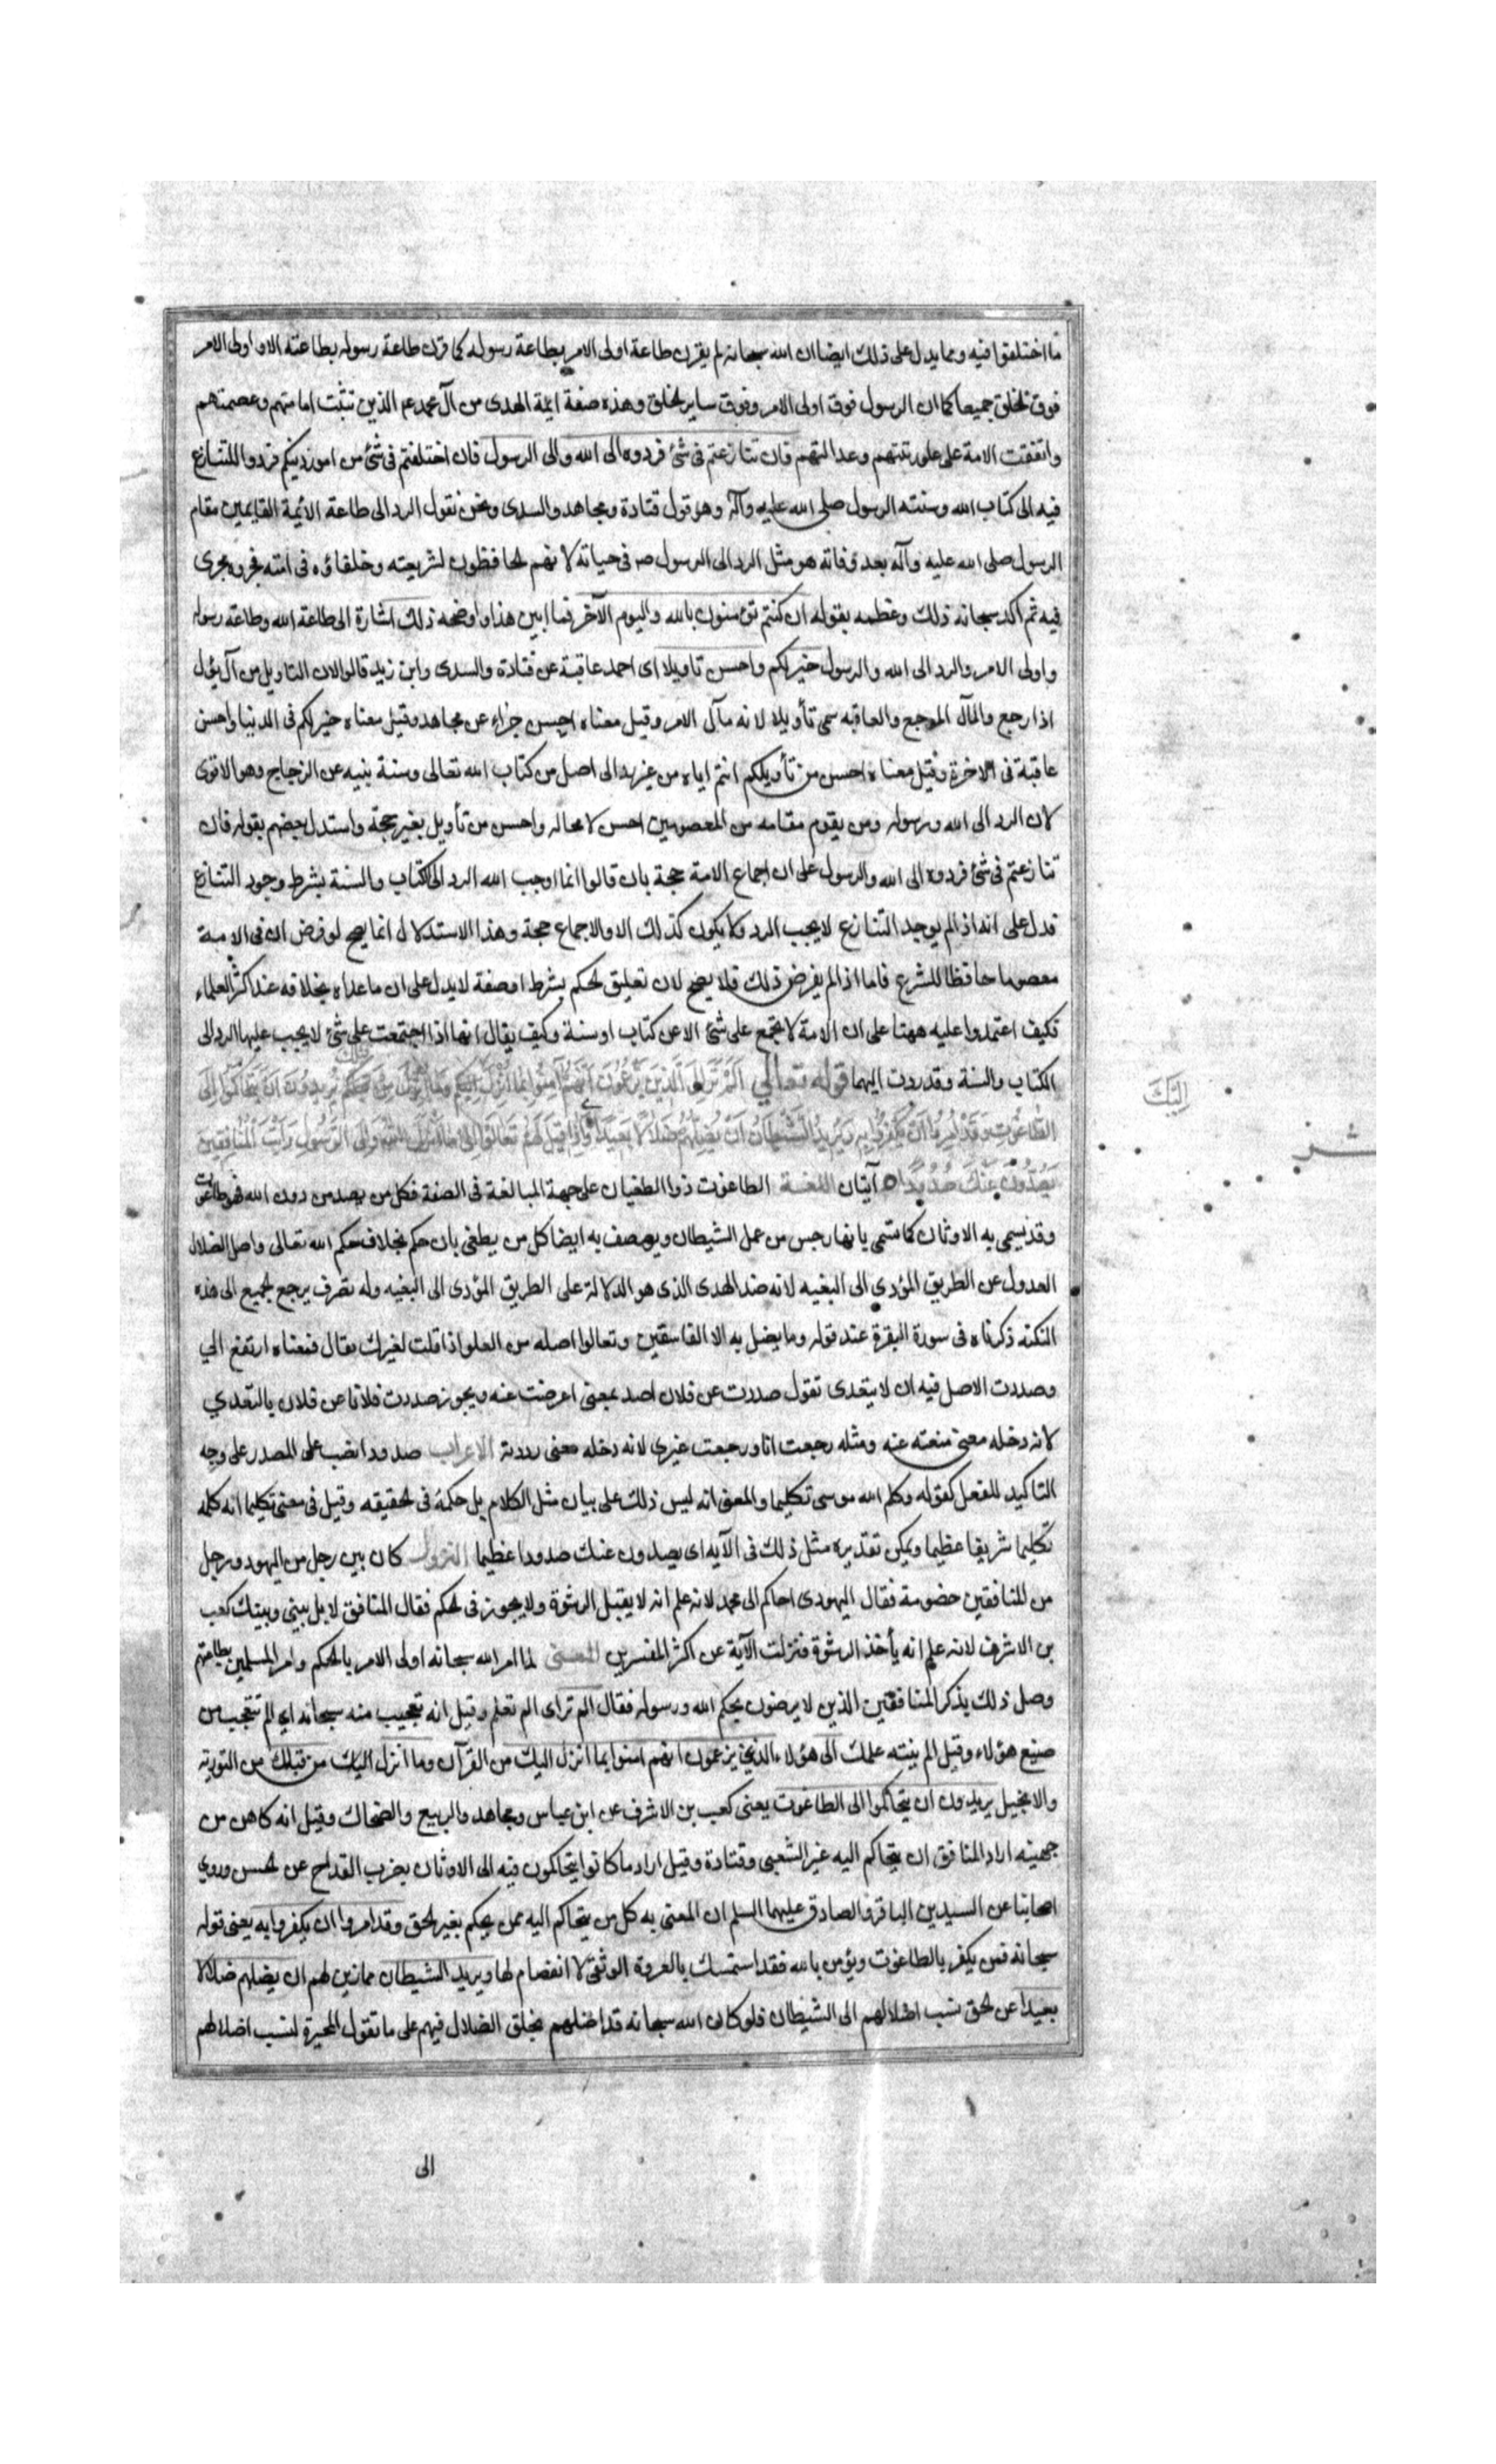 ما اختلفوا فيه ومما يدل على ذلك ايضا ان الله سبحانه لم يقرن طاعة اولى الامر بطاعة رسوله كما قرن طاعة رسوله بطاعته الا و اولى الامر
فوق الخلق جميعا كما ان الرسول فوق اولى الامر وفوق ساير الخلق وهذه صفة ايمة الهدى من آل محمد عم الذين تثبت امامتهم وعصمتهم
واتفقت الامة على علو رتبتهم وعدالتهم فان تنازعتم فى شئ فردوه الى الله والى الرسول فان اختلفتم فى شئ من امور دينكم فردوا التنازع
فيه الى كتاب الله وسنته الرسول صلى الله عليه وآله وهو قول قتادة ومجاهد والسدى ونحن نقول الرد الى طاعة الأئمة القايمين مقام
الرسول صلى الله عليه وآله بعد وفاته هو مثل الرد الى الرسول صه فى حياته لانهم الحافظون لشريعته وخلفاؤه فى امته فجروه مجرى
فيه ثم اكد سبحانه ذلك وعظمه بقوله ان كنتم تؤمنون بالله واليوم الآخر فما ابين هذا واوضحه ذلك اشارة الى طاعة الله وطاعة رسوله
واولى الامر والرد الى الله والرسول خير لكم واحسن تاويلا اى احمد عاقبة عن قتادة والسدى وابن زيد قالوا لان التاويل من آل يؤل
اذا رجع والمآل المرجع والعاقبه سمى تأويلا لانه مآل الامر وقيل معناه احسن جزاء عن مجاهد وقيل معناه خير لكم فى الدنيا واحسن
عاقبة فى الاخرة وقيل معناه احسن من تأويلكم انتم اياه من غير رد الى اصل من كتاب الله تعالى وسنة نبيه عن الزجاج وهو الاقوى
لان الرد الى الله ورسوله ومن يقوم مقامه من المعصومين احسن لا محاله واحسن من تأويل بغير حجة واستدل بعضهم بقوله فان
تنازعتم فى شئ فردوه الى الله والرسول على ان اجماع الامة حجة بان قالوا انما اوجب الله الرد الى الكتاب والسنة بشرط وجود التنازع
فدل على انه اذا لم يوجد التنازع لا يجب الرد ولا يكون كذلك الا والاجماع حجة وهذا الاستدلال انما يصح لو فرض ان فى الامة
معصوما حافظا للشرع فاما اذا لم يفرض ذلك فلا يصح لان تعليق الحكم بشرط او صفة لا يدل على ان ما عداه بخلافه عند اكثر العلماء
فكيف اعتمدوا عليه ههنا على ان الامة لا تجتمع على شئ الا عن كتاب او سنة وكيف يقال انها اذا اجتمعت على شئ لا يجب عليها الرد الى
الكتاب والسنة وقد ردت اليهما قوله تعالى اَلَمْ تَرَ اِلَى الَّذِينَ يَزْعُمُونَ اَنَّهُمْ آمَنُوا بِمَا اُنْزِلَ اِلَيْكَ وَمَا اُنْزِلَ مِنْ قَبْلِكَ يُرِيدُونَ اَنْ يَتَحَاكَمُوا اِلَى
الطَّاغُوتِ وَقَدْ اُمِرُوا اَنْ يَكْفُرُوا بِهِ وَيُرِيدُ الشَّيْطَانُ اَنْ يُضِلَّهُمْ ضَلَالًا بَعِيدًا وَاِذَا قِيلَ لَهُمْ تَعَالَوْا اِلَى مَا اَنْزَلَ اللهُ وَاِلَى الرَّسُولِ رَاَيْتَ الْمُنَافِقِينَ
يَصُدُّونَ عَنْكَ صُدُودًا ه آيتان اللغة الطاغوت ذوا الطغيان على جهة المبالغة فى الصفة فكل من يعبد من دون الله فهو طاغوت
وقد يسمى به الاوثان كما تسمى بانها رجس من عمل الشيطان ويوصف به ايضا كل من يطغى بان حكم بخلاف حكم الله تعالى واصل الضلال
العدول عن الطريق المؤدي الى البغيه لانه ضد الهدى الذى هو الدلالة على الطريق المؤدى الى البغيه وله تصرف يرجع الجميع الى هذه
النكته ذكرناه فى سورة البقرة عند قوله وما يضل به الا الفاسقين وتعالوا اصله من العلو اذا قلت لغيرك تعال فمعناه ارتفع الي
وصددت الاصل فيه ان لا يتعدى تقول صددت عن فلان اصد بمعنى اعرضت عنه ويجوز صددت فلانا عن فلان بالتعدي
لانه دخله معنى منعته عنه ومثله رجعت انا ورجعت غيرى لانه دخله معنى رددته الاعراب صدودا نصب على المصدر على وجه
التاكيد للفعل كقوله وكلم الله موسى تكليما والمعنى انه ليس ذلك على بيان مثل الكلام بل حكمة فى الحقيقه وقيل فى معنى تكليما انه كلمه
تكليما شريفا عظيما ويمكن تقديره مثل ذلك فى الآيه اى يصدون عنك صدودا عظيما النزول كان بين رجل من اليهود ورجل
من المنافقين خصومة فقال اليهودى احاكم الى محمد لانه علم انه لا يقبل الرشوة ولا يجوز فى الحكم فقال المنافق لا بل بينى وبينك كعب
بن الاشرف لانه علم انه يأخذ الرشوة فنزلت الآية عن اكثر المفسرين المعنى لما امر الله سبحانه اولى الامر بالحكم وامر المسلمين بطاعتهم
وصل ذلك بذكر المنافقين الذين لا يرضون بحكم الله ورسوله فقال الم تر اى الم تعلم وقيل انه تعجيب منه سبحانه اى الم تتعجب من
صنيع هؤلاء وقيل الم ينته علمك الى هؤلاء الذين يزعمون انهم امنوا بما انزل اليك من القرآن وما انزل اليك من قبلك من التورية
والانجيل يريدون ان يتحاكموا الى الطاغوت يعنى كعب بن الاشرف عن ابن عباس ومجاهد والربيع والضحاك وقيل انه كاهن من
جهينه اراد المنافق ان يتحاكم اليه عن الشعبى وقتادة وقيل اراد ما كانوا يتحاكمون فيه الى الاوثان بضرب القداح عن الحسن وروي
اصحابنا عن السيدين الباقر والصادق عليهما السلم ان المعنى به كل من يتحاكم اليه ممن يحكم بغير الحق وقد امروا ان يكفروا به يعنى قوله
سبحانه فمن يكفر بالطاغوت ويؤمن بالله فقد استمسك بالعروة الوثقى لا انفصام لها ويريد الشيطان مما زين لهم ان يضلهم ضلالا
بعيدا عن الحق نسب اضلالهم الى الشيطان فلو كان الله سبحانه قد اضلهم بخلق الضلال فيهم على ما تقول المجبرة لنسب اضلالهم
الى
اِلَيْكَ